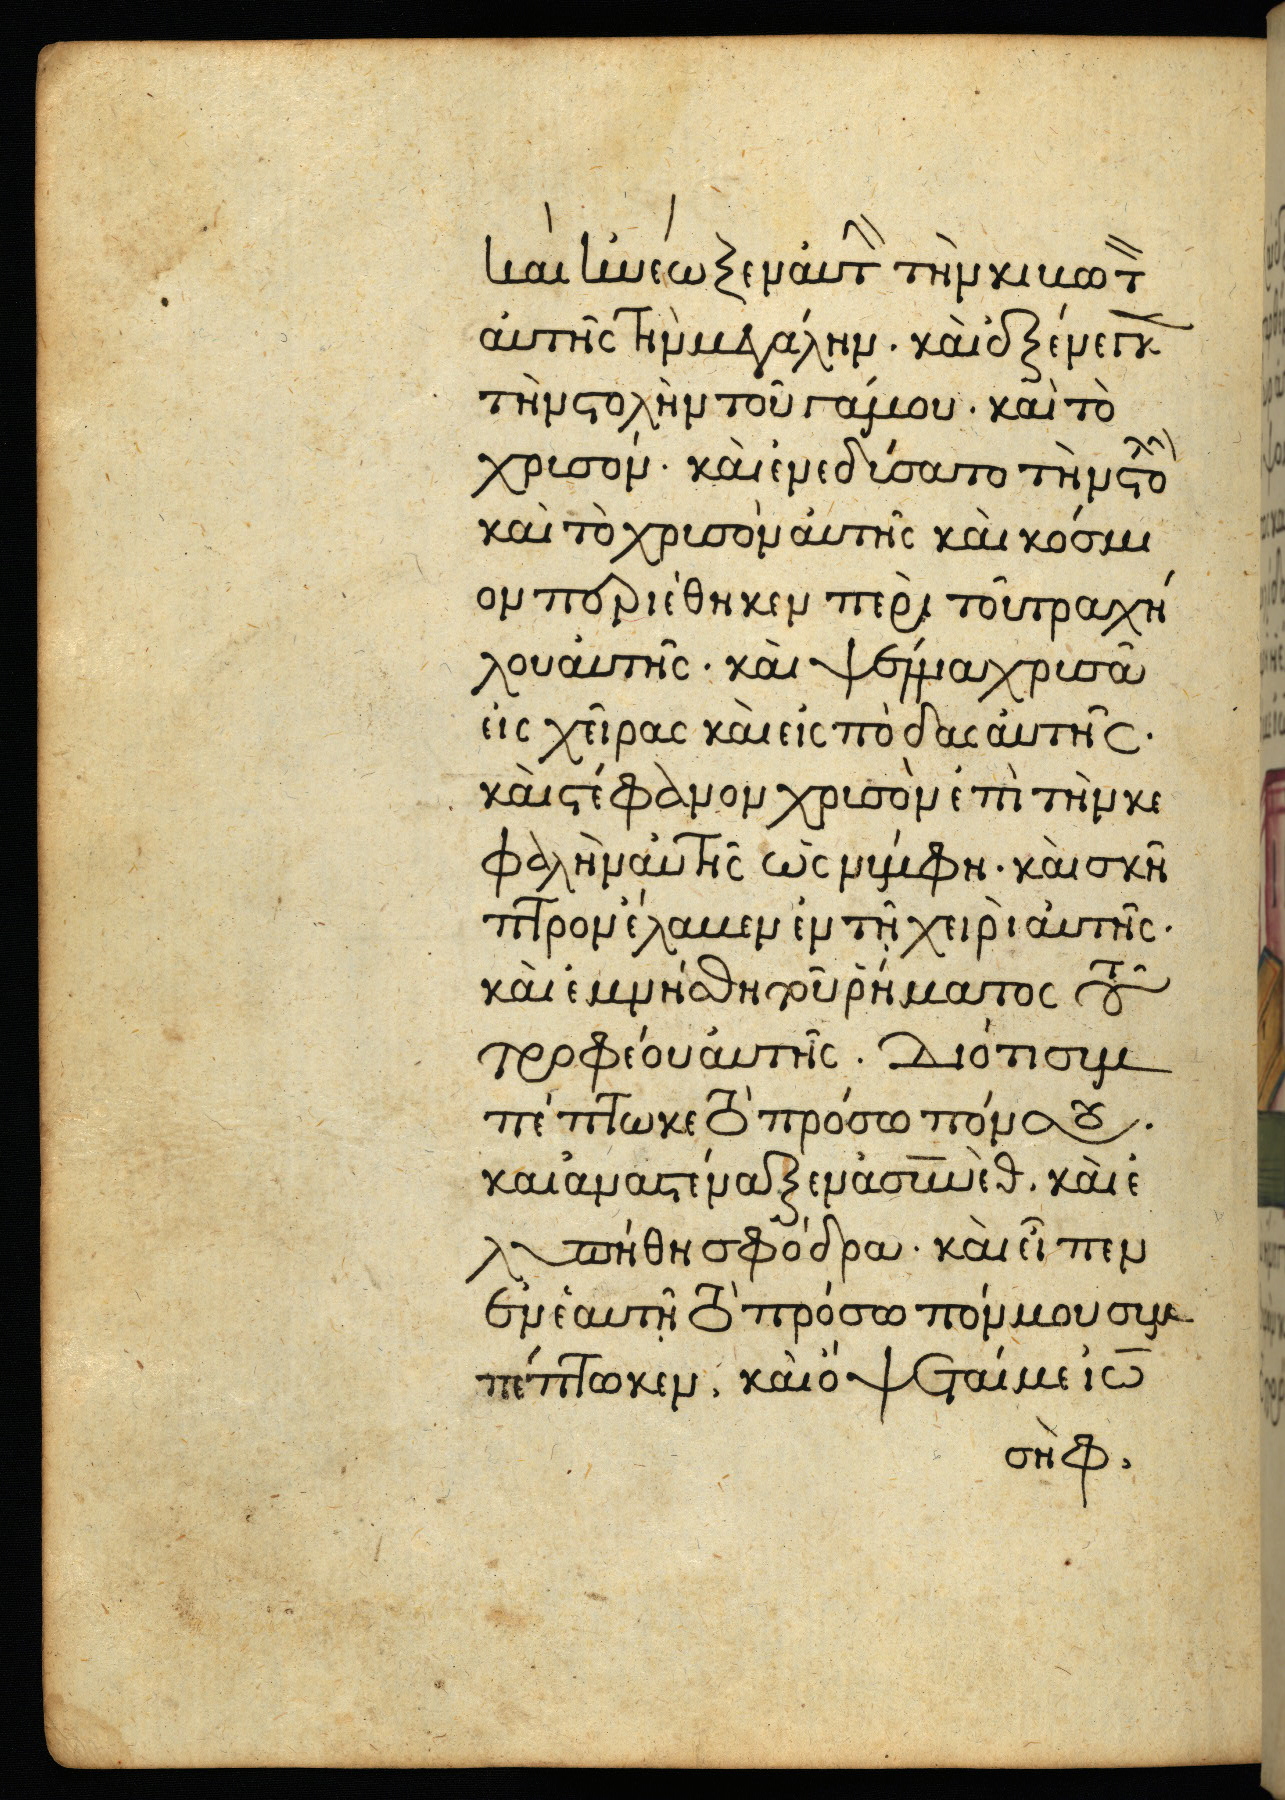 καὶ ἠνέωξεν αὐτὴν τὴν κιβωτὸν
αὐτῆς τὴν μεγάλην· καὶ ἐξένεγκε
τὴν στολὴν τοῦ γάμου· καὶ τὸ
χρισόν· καὶ ἐνεδύσατο τὴν στολὴν
καὶ τὸ χρισὸν αὐτῆς καὶ κόσμι
ον πολὺ ἔθηκεν περὶ τοῦ τραχή
λου αὐτῆς· καὶ ψέλλια χρισᾶ
εἰς χεῖρας καὶ εἰς πόδας αὐτῆς·
καὶ στέφανον χρισὸν ἐπὶ τὴν κε
φαλὴν αὐτῆς ὡς νύμφη· καὶ σκῆ
πτρον ἔλαβεν ἐν τῇ χειρὶ αὐτῆς·
καὶ ἐμνήσθη τοῦ ῥήματος τοῦ
τροφέου αὐτῆς· Διότι συμ
πέπτωκε τὸ πρόσωπόν σου·
καὶ ἀναστέναξεν ἀσυνὲθ· καὶ ἐ
λυπήθη σφόδρα· καὶ εἶπεν
ἐν ἑαυτῇ τὸ πρόσωπόν μου συμ
πέπτωκεν, καὶ ὄψεταί με ἰω
σὴφ,